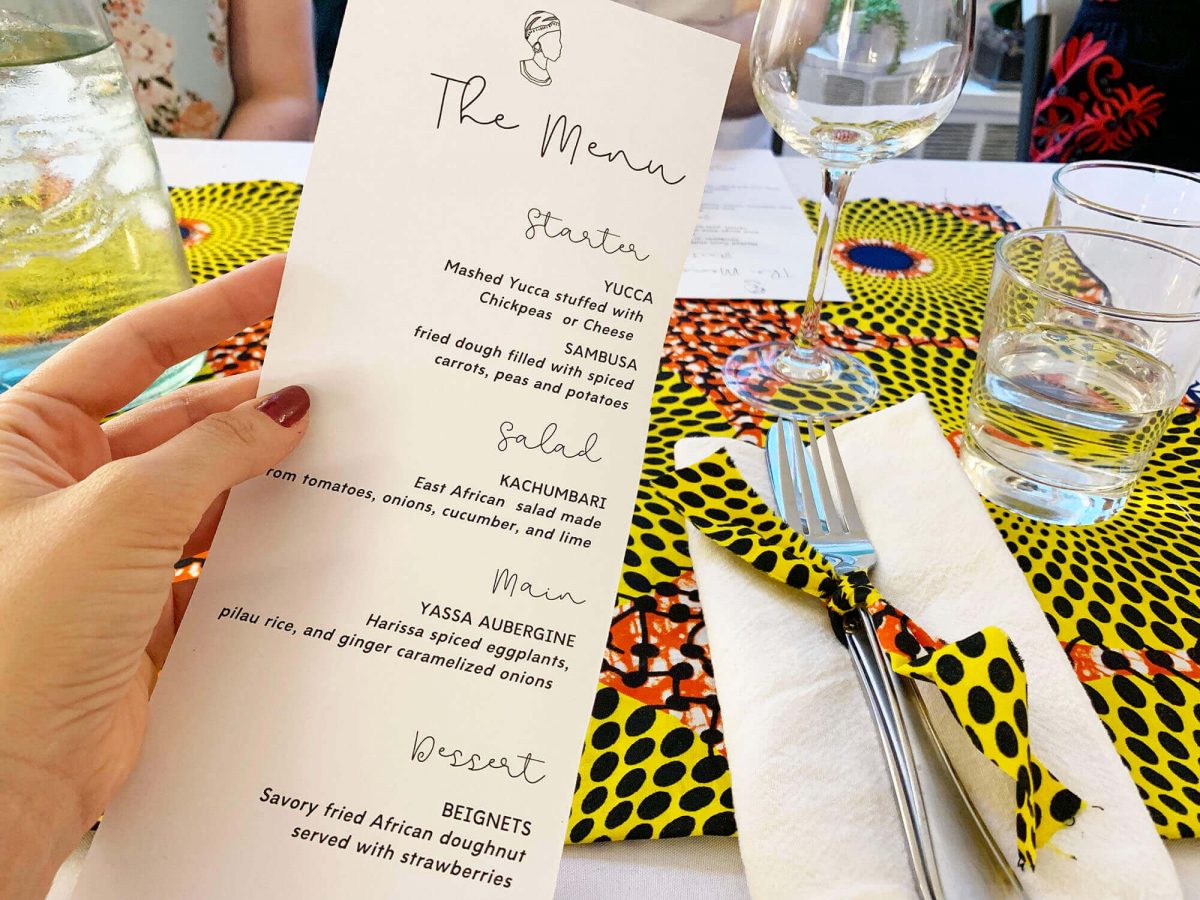 The Menu
Starter
YUCCA
Mashed Yucca stuffed with
Chickpeas or Cheese
SAMBUSA
fried dough filled with spiced
carrots, peas and potatoes
Salad
KACHUMBARI
East African salad made
rom tomatoes, onions, cucumber, and lime
Main
YASSA AUBERGINE
Harissa spiced eggplants,
pilau rice, and ginger caramelized onions
Dessert
BEIGNETS
Savory fried African doughnut
served with strawberries
The Menu